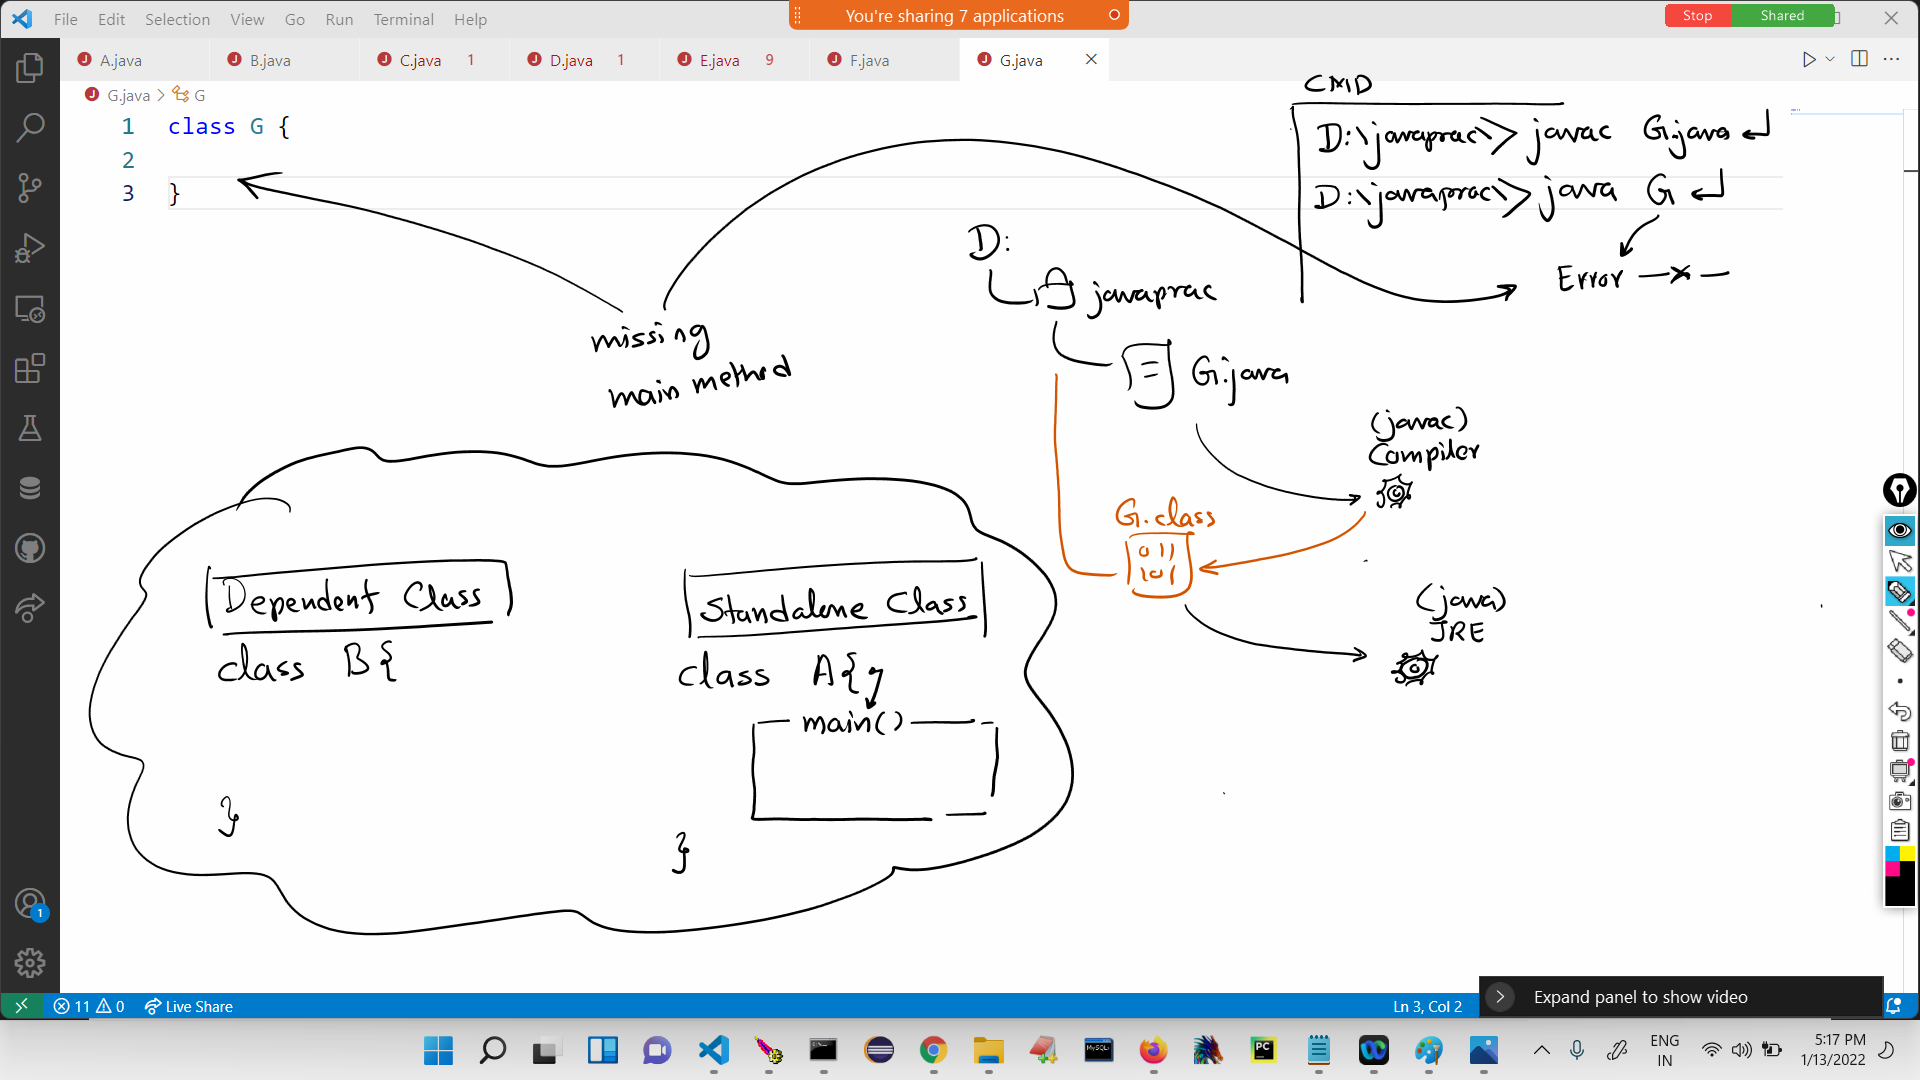 File Edit Selection View Go Run Terminal Help
You're sharing 7 applications
Stop Shared
A.java B.java C.java 1 D.java 1 E.java 9 F.java G.java
G.java > G
1 class G {
2
3 }
CMD
D:\javaprac\> javac G.java
D:\javaprac\> java G
Error
D:
javaprac
G.java
missing
main method
(javac)
Compiler
G.class
011
101
(java)
JRE
Dependent Class
class B{
}
Standalone Class
class A{
main()
}
1
11 0 Live Share
Ln 3, Col 2
Expand panel to show video
MySQL
PC
ENG
IN
5:17 PM
1/13/2022